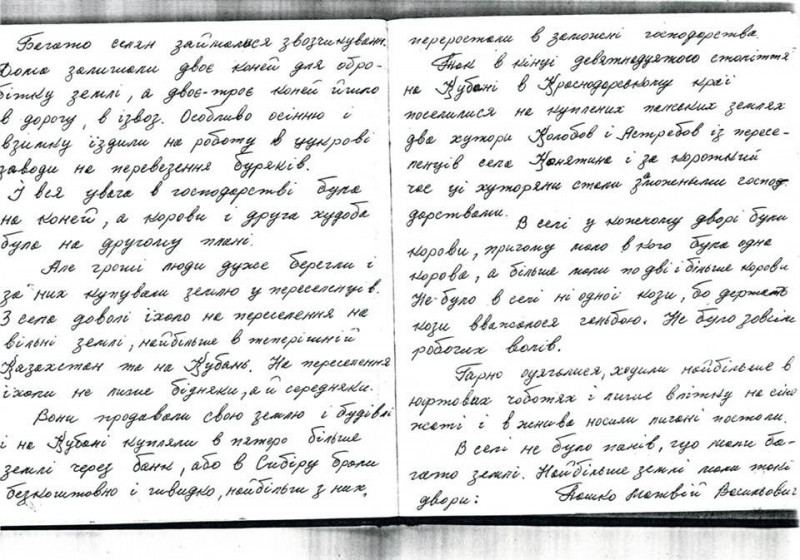 Багато селян займалося звозчикуванн.
Дома залишали двоє коней для обро-
бітку землі, а двоє-троє коней йшло
в дорогу, в ізвоз. Особливо осінню і
взімку їздили на роботу в цукрові
заводи на перевезення буряків.
І вся увага в господарстві була
на коней, а корови і друга худоба
була на другому плані.
Але гроші люди дуже берегли і
за них купували землю у переселенців.
З села доволі їхало на переселення на
вільні землі, найбільше в теперішній
Казахстан та на Кубань. На переселення
їхали не лише бідняки, а й середняки.
Вони продавали свою землю і будівлі
і на Кубані купляли в пятеро більше
землі через банк, або в Сибіру брали
безкоштовно і швидко, найбільш з них,
переростали в заможні господарства.
Так в кінці девятнадцятого століття
на Кубані в Краснодарському краї
поселилися на куплених панських землях
два хутори Колобов і Ястребов із пересе-
ленців села Конятина і за короткий
час ці хуторяни стали заможеними господ-
дарствами.
В селі у кожному дворі були
корови, причому мало в кого була одна
корова, а більше мали по дві і більше корови
Не було в селі ні одної кози, бо держать
кози вважалося ганьбою. Не було зовсім
робочих волів.
Гарно одягалися, ходили найбільше в
юхтових чоботях і лише влітку на сіно
жаті і в жнива носили личані постоли.
В селі не було панів, що мали ба-
гато землі. Найбільше землі мали такі
двори: Пашко Матвій Васильович